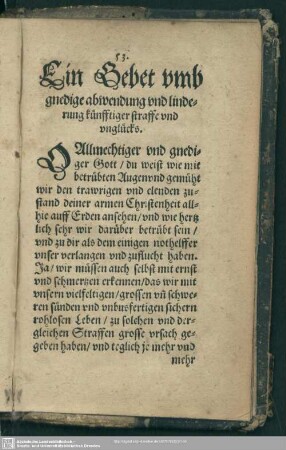 53.
Ein Gebet vmb
gnedige abwendung vnd linde-
rung künfftiger straffe vnd
vnglücks.
O Allmechtiger vnd gnedi-
ger Gott / du weist wie mit
betrübten Augen vnd gemüht
wir den trawrigen vnd elenden zu-
stand deiner armen Christenheit all-
hie auff Erden ansehen / vnd wie hertz
lich sehr wir darüber betrübt sein /
vnd zu dir als dem einigen nothelffer
vnser verlangen vnd zuflucht haben.
Ja / wir müssen auch selbst mit ernst
vnd schmertzen erkennen / das wir mit
vnsern vielfeltigen / grossen vñ schwe-
ren sünden vnd vnbußfertigen sichern
rohlosen Leben / zu solchen vnd der-
gleichen Straffen grosse vrsach ge-
geben haben / vnd teglich je mehr vnd
mehr